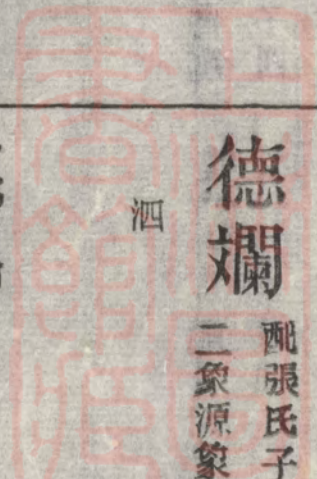 德斕
配張氏子
二象源象
泗